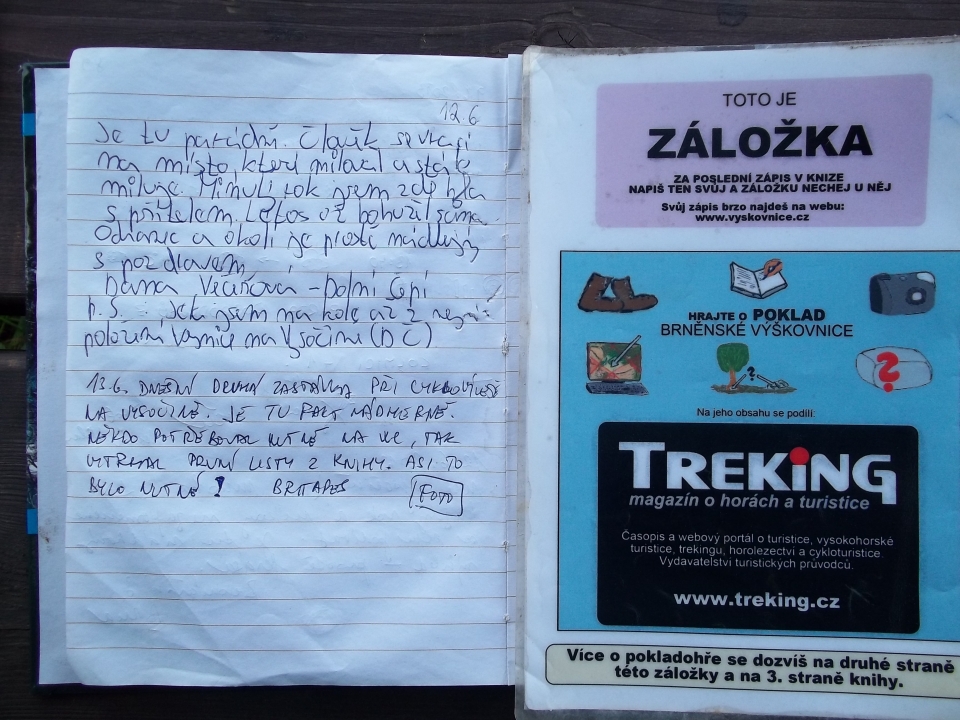 12.6
Je tu parádní. Člověk se vrací
na místo, které miloval a stále
miluje. Minulí rok jsem zde byla
s přítelem. Letos už bohužel sama.
a okolí je prostě nádherný
s pozdravem
Dana - polní
P.S.: Jela jsem na kole až z
položení na Vysočině (DČ)
13.6. DNEŠNÍ DRUHÁ ZASTÁVKA PŘI CYKLOVÝLETĚ
NA VYSOČINĚ. JE TU FAKT NÁDHERNĚ.
NĚKDO POTŘEBOVAL NUTNĚ NA WC, TAK
VYTRHAL PRVNÍ LISTY Z KNIHY. ASI TO
BYLO NUTNÉ! BRITAPES FOTO
TOTO JE
ZÁLOŽKA
ZA POSLEDNÍ ZÁPIS V KNIZE
NAPIŠ TEN SVŮJ A ZÁLOŽKU NECHEJ U NĚJ
Svůj zápis brzo najdeš na webu:
www.vyskovnice.cz
HRAJTE O POKLAD
BRNĚNSKÉ VÝŠKOVNICE
?
?
Na jeho obsahu se podílí:
TREKING
magazín o horách a turistice
Časopis a webový portál o turistice, vysokohorské
turistice, trekingu, horolezectví a cykloturistice.
Vydavatelství turistických průvodců.
www.treking.cz
Více o pokladohře se dozvíš na druhé straně
této záložky a na 3. straně knihy.